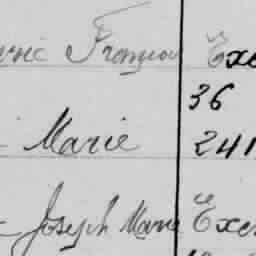 François Exe
36
Marie 241
Joseph Marie Exe